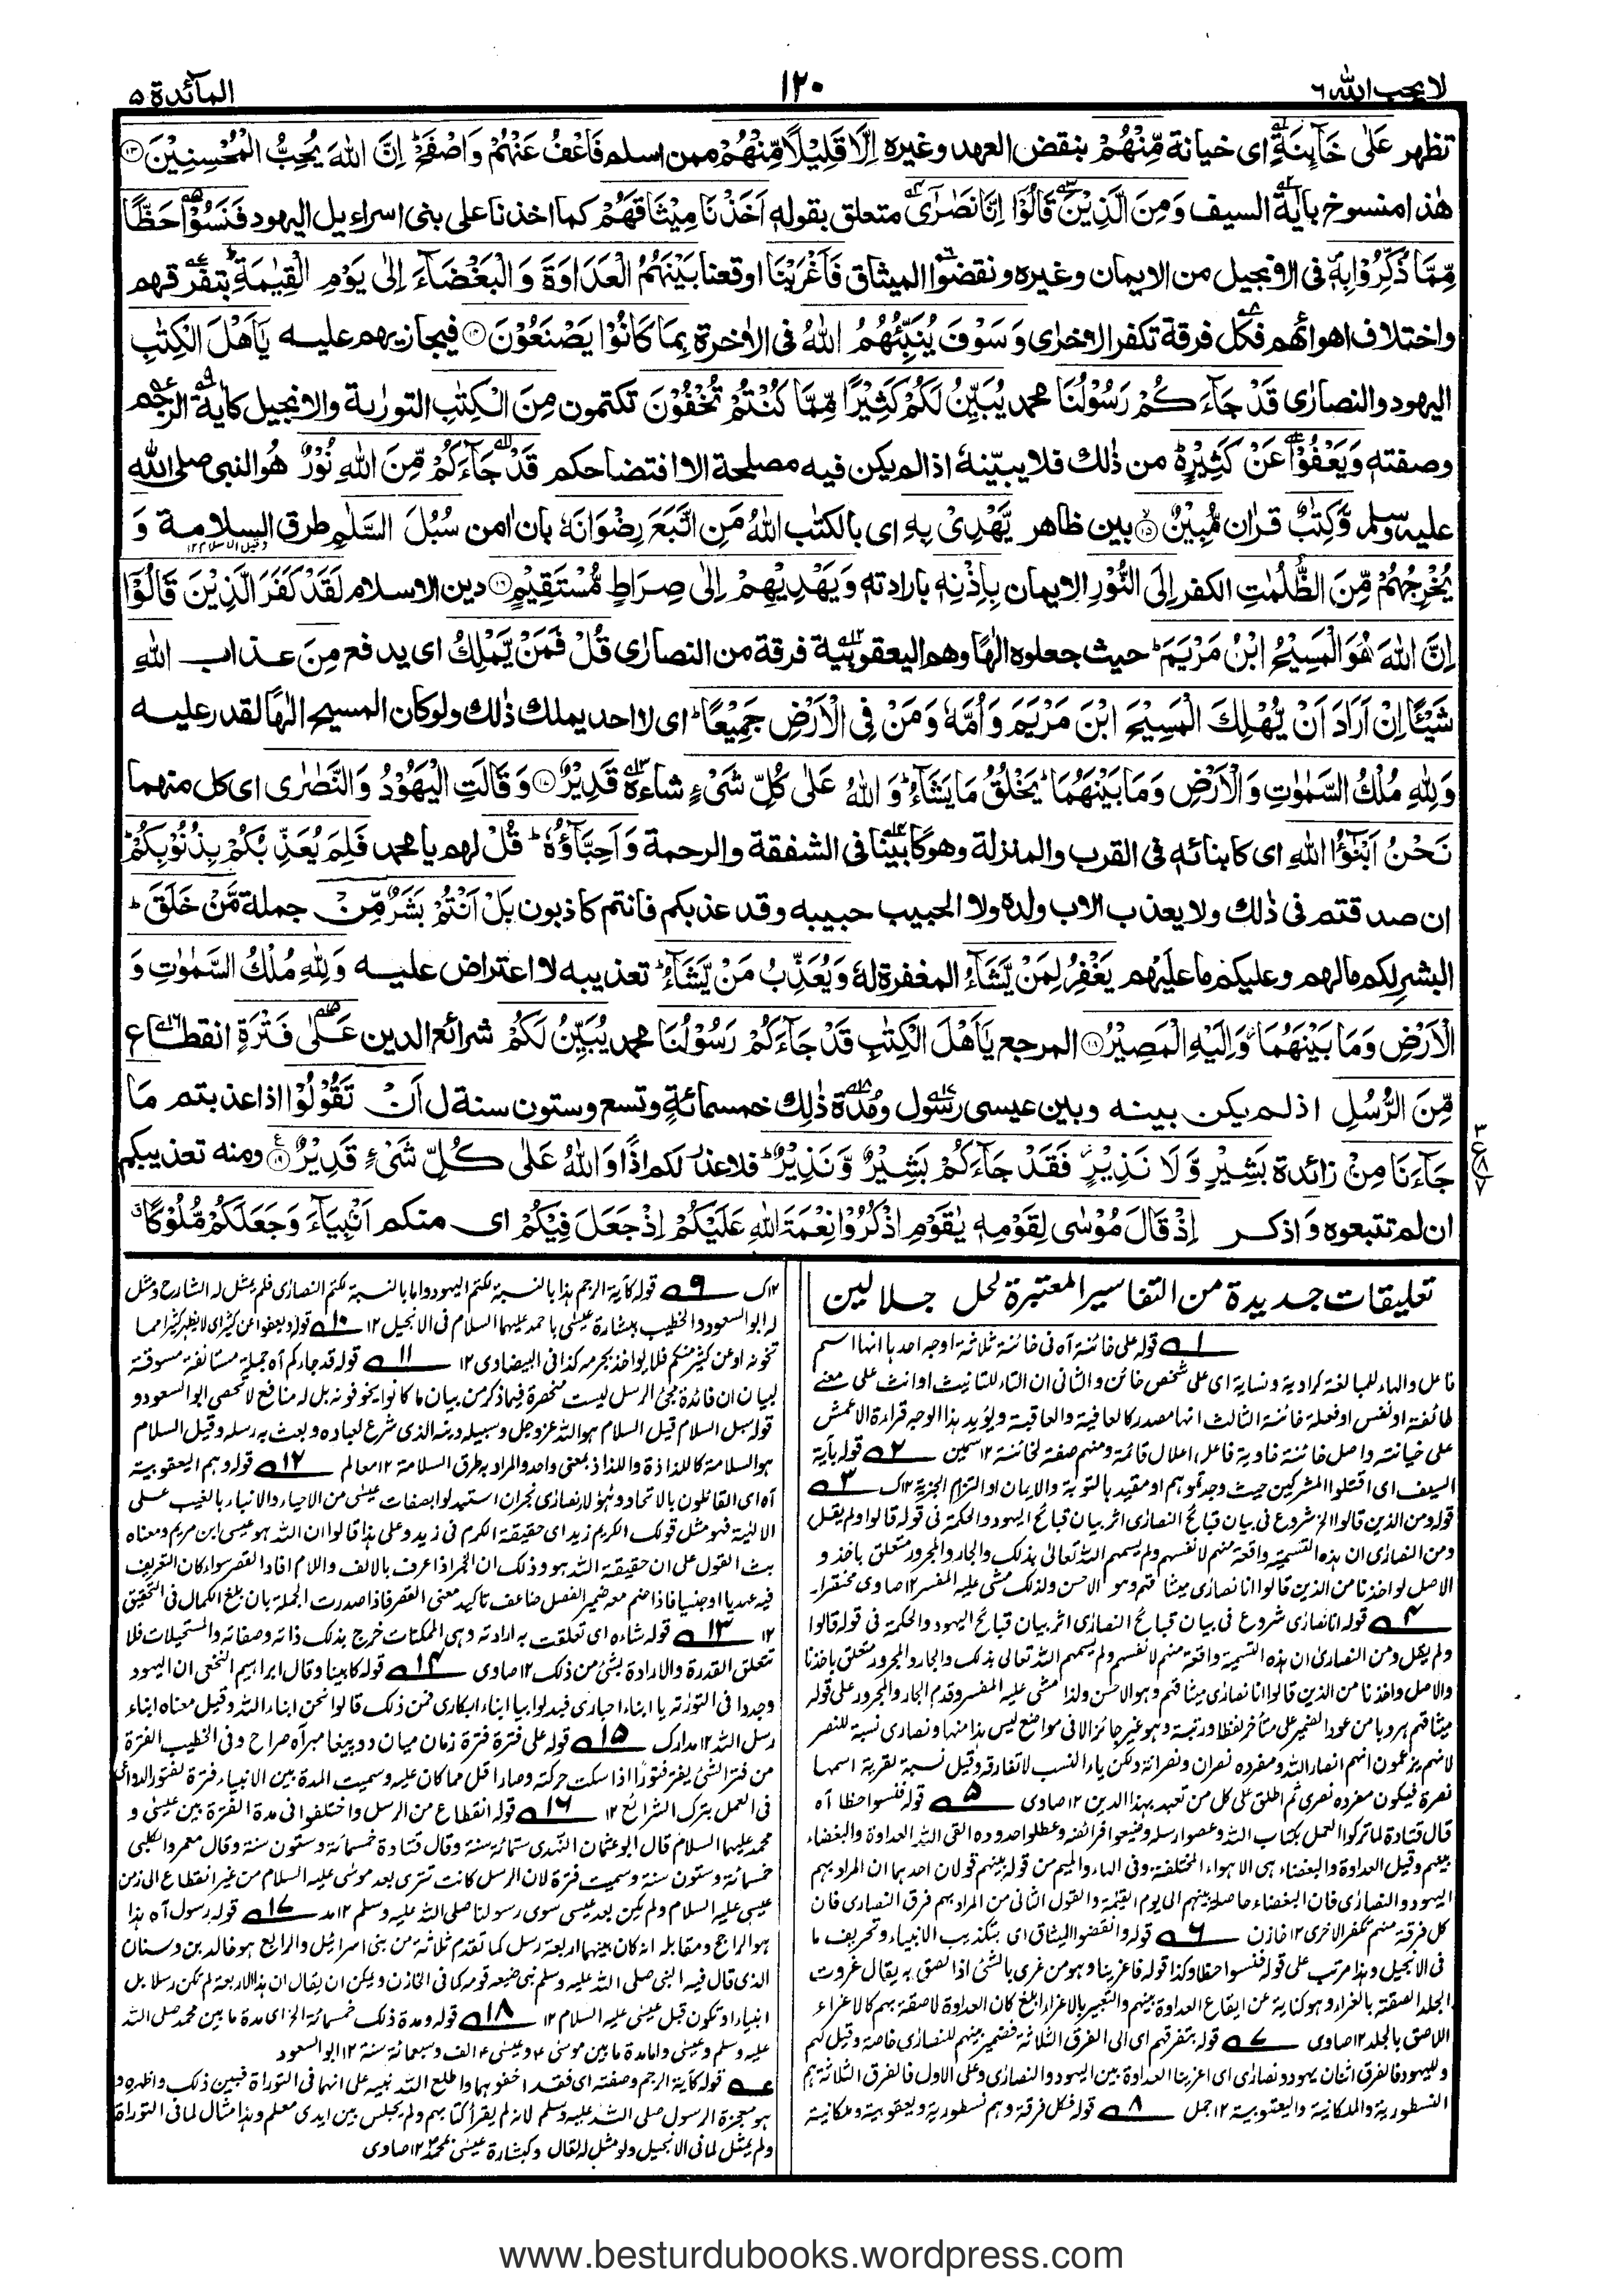 لا يحب الله ٦
١٢٠
المآئدة ٥
تظهر عَلٰى خَآئِنَةٍ اى خيانة مِّنْهُمْ بنقض العهد وغيره اِلَّا قَلِيْلًا مِّنْهُمْ ممن اسلم فَاعْفُ عَنْهُمْ وَاصْفَحْ ؕ اِنَّ اللهَ يُحِبُّ الْمُحْسِنِيْنَ ⑬
هٰذا منسوخ باٰية السيف وَمِنَ الَّذِيْنَ قَالُوْٓا اِنَّا نَصٰرٰٓى متعلق بقوله اَخَذْنَا مِيْثَاقَهُمْ كما اخذنا على بنى اسراءيل اليهود فَنَسُوْا حَظًّا
مِّمَّا ذُكِّرُوْا بِهٖ فى الانجيل من الايمان وغيره ونقضوا الميثاق فَاَغْرَيْنَا اوقعنا بَيْنَهُمُ الْعَدَاوَةَ وَالْبَغْضَآءَ اِلٰى يَوْمِ الْقِيٰمَةِ ؕ بتفرقهم
واختلاف اهوائهم فكل فرقة تكفر الاخرٰى وَسَوْفَ يُنَبِّئُهُمُ اللهُ فى الاٰخرة بِمَا كَانُوْا يَصْنَعُوْنَ ⑭ فيجازيهم عليه يٰٓاَهْلَ الْكِتٰبِ
اليهود والنصارٰى قَدْ جَآءَكُمْ رَسُوْلُنَا محمد يُبَيِّنُ لَكُمْ كَثِيْرًا مِّمَّا كُنْتُمْ تُخْفُوْنَ تكتمون مِنَ الْكِتٰبِ التورٰية والانجيل كاٰية الرجم
وصفته وَيَعْفُوْا عَنْ كَثِيْرٍ ؕ من ذٰلك فلا يبيّنهٗ اذا لم يكن فيه مصلحة الا افتضاحكم قَدْ جَآءَكُمْ مِّنَ اللهِ نُوْرٌ هُو النبى صلى الله
عليه وسلم وَّكِتٰبٌ قراٰن مُّبِيْنٌ ⑮ بين ظاهر يَّهْدِىْ بِهِ اى بالكتٰب اللهُ مَنِ اتَّبَعَ رِضْوَانَهٗ بان اٰمن سُبُلَ السَّلٰمِ طرق السلامة وَ
وقيل الاسلام ١٢
يُخْرِجُهُمْ مِّنَ الظُّلُمٰتِ الكفر اِلَى النُّوْرِ الايمان بِاِذْنِهٖ بارادته وَيَهْدِيْهِمْ اِلٰى صِرَاطٍ مُّسْتَقِيْمٍ ⑯ دين الاسلام لَقَدْ كَفَرَ الَّذِيْنَ قَالُوْٓا
اِنَّ اللهَ هُوَ الْمَسِيْحُ ابْنُ مَرْيَمَ ؕ حيث جعلوه الٰهًا وهم اليعقوبية فرقة من النصارٰى قُلْ فَمَنْ يَّمْلِكُ اى يدفع مِنَ عذاب اللهِ
شَيْئًا اِنْ اَرَادَ اَنْ يُّهْلِكَ الْمَسِيْحَ ابْنَ مَرْيَمَ وَاُمَّهٗ وَمَنْ فِى الْاَرْضِ جَمِيْعًا ؕ اى لا احد يملك ذٰلك ولو كان المسيح الٰهًا لقدر عليه
وَلِلّٰهِ مُلْكُ السَّمٰوٰتِ وَالْاَرْضِ وَمَا بَيْنَهُمَا ؕ يَخْلُقُ مَا يَشَآءُ ؕ وَاللهُ عَلٰى كُلِّ شَىْءٍ شاءه قَدِيْرٌ ⑰ وَقَالَتِ الْيَهُوْدُ وَالنَّصٰرٰى اى كل منهما
نَحْنُ اَبْنٰٓؤُا اللهِ اى كابنائه فى القرب والمنزلة وهو كابينا فى الشفقة والرحمة وَاَحِبَّآؤُهٗ ؕ قُلْ لهم يا محمد فَلِمَ يُعَذِّبُكُمْ بِذُنُوْبِكُمْ ؕ
ان صدقتم فى ذٰلك ولا يعذب الاب ولده ولا الحبيب حبيبه وقد عذبكم فانتم كاذبون بَلْ اَنْتُمْ بَشَرٌ مِّنْ جملة مَّنْ خَلَقَ ؕ
البشر لكم مالهم وعليكم ما عليهم يَغْفِرُ لِمَنْ يَّشَآءُ المغفرة لهٗ وَيُعَذِّبُ مَنْ يَّشَآءُ ؕ تعذيبه لا اعتراض عليه وَلِلّٰهِ مُلْكُ السَّمٰوٰتِ وَ
الْاَرْضِ وَمَا بَيْنَهُمَا وَاِلَيْهِ الْمَصِيْرُ ⑱ المرجع يٰٓاَهْلَ الْكِتٰبِ قَدْ جَآءَكُمْ رَسُوْلُنَا محمد يُبَيِّنُ لَكُمْ شرائع الدين عَلٰى فَتْرَةٍ انقطاع
مِّنَ الرُّسُلِ اذ لم يكن بينه وبين عيسى رسول ومُدة ذٰلك خمسمائةٍ وتسع وستون سنة ل اَنْ تَقُوْلُوْا اذا عذبتم مَا
جَآءَنَا مِنْ زائدة بَشِيْرٍ وَّلَا نَذِيْرٍ فَقَدْ جَآءَكُمْ بَشِيْرٌ وَّنَذِيْرٌ ؕ فلا عذر لكم اذًا وَاللهُ عَلٰى كُلِّ شَىْءٍ قَدِيْرٌ ⑲ ومنه تعذيبكم
ان لم تتبعوه وَاذكر اِذْ قَالَ مُوْسٰى لِقَوْمِهٖ يٰقَوْمِ اذْكُرُوْا نِعْمَةَ اللهِ عَلَيْكُمْ اِذْ جَعَلَ فِيْكُمْ اى منكم اَنْۢبِيَآءَ وَجَعَلَكُمْ مُّلُوْكًا
تعليقات جديدة من التفاسير المعتبرة لحل جلالين
١ قوله على خائنة آه فى خائنة ثلاثة اوجه احدها انها اسم
فاعل والهاء للمبالغة كراوية ونسابة اى على شخص خائن والثانى ان التاء للتانيث وانث على معنے
طائفة او نفس او فعلة خائنة الثالث انها مصدر كالعافية والعاقبة ويؤيد هذا الوجه قراءة الاعمش
على خيانة واصل خائنة خاونة فاعل اعلال قائمة ومنهم صفة لخائنة ١٢ سمين ٢ قوله باٰية
السيف اى اقتلوا المشركين حيث وجدتموهم او مقيد بالتوبة والايمان او التزام الجزية ١٢ ك ٣
قوله ومن الذين قالوا الخ شروع فى بيان قبائح النصارٰى اثر بيان قبائح اليهود والحكمة فى قوله قالوا ولم يقل
ومن النصارٰى ان هذه التسمية واقعة منهم لانفسهم ولم يسمهم الله تعالٰى بذلك والجار والمجرور متعلق باخذ و
الاصل واخذنا من الذين قالوا انا نصارٰى ميثاقهم وهو الاحسن ولذلك مشى عليه المفسر ١٢ صاوى مختصرا
٤ قوله انا نصارٰى شروع فى بيان قبائح النصارٰى اثر بيان قبائح اليهود والحكمة فى قوله قالوا
ولم يقل ومن النصارٰى ان هذه التسمية واقعة منهم لانفسهم ولم يسمهم الله تعالٰى بذلك والجار والمجرور متعلق باخذنا
والاصل واخذنا من الذين قالوا انا نصارٰى ميثاقهم وهو الاحسن ولذا مشى عليه المفسر وقدم الجار والمجرور على قوله
ميثاقهم هروبا من عود الضمير على متأخر لفظا ورتبة وهو غير جائز الا فى مواضع ليس هذا منها ونصارى نسبة للنصر
لانهم يزعمون انهم انصار الله ومفرده نصران ونصرانة ولكن ياء النسب لا تفارقه وقيل نسبة لقرية اسمها
نصرة فيكون مفرده نصرى ثم اطلق على كل من تعبد بهذا الدين ١٢ صاوى ٥ قوله فنسوا حظا آه
قال قتادة لما تركوا العمل بكتاب الله وعصوا رسله وضيعوا فرائضه وعطلوا حدوده القى الله العداوة والبغضاء
بينهم وقيل العداوة والبغضاء هى الاهواء المختلفة وفى الهاء والميم من قوله بينهم قولان احدهما ان المراد بهم
اليهود والنصارٰى فان البغضاء حاصلة بينهم الى يوم القيٰمة والقول الثانى من المراد بهم فرق النصارٰى فان
كل فرقة منهم تكفر الاخرى ١٢ خازن ٦ قوله ونقضوا الميثاق اى بتكذيب الانبياء وتحريف ما
فى الانجيل وهذا مرتب على قوله فنسوا حظا وكذا قوله فاغرينا وهو من غرى بالشئ اذا لصق به يقال غروت
الجلد الصقته بالغراء وهو كناية عن ايقاع العداوة بينهم والتعبير بالاغراء ابلغ كان العداوة لاصقة بهم كالاغراء
اللاصق بالجلد ١٢ صاوى ٧ قوله بتفرقهم اى الى الفرق الثلاثة فضمير بينهم للنصارٰى خاصة وقيل لهم
ولليهود فالفرق اثنان يهود ونصارٰى اى اغرينا العداوة بين اليهود والنصارٰى وعلى الاول فالفرق الثلاثة هم
النسطورية والملكانية واليعقوبية ١٢ جمل ٨ قوله فكل فرقة وهم نسطورية ويعقوبية وملكانية
١٢ ك ٩ قوله كآية الرجم هذا بالنسبة لكتم اليهود واما بالنسبة لكتم النصارٰى فلم يمثل له الشارح ومثل
له ابو السعود والخطيب ببشارة عيسٰى باحمد عليهما السلام فى الانجيل ١٢ ١٠ قوله ويعفوا عن كثير اى لا يظهر كثيرا مما
تخفونه او عن كثير منكم فلا يؤاخذ بجرمه كذا فى البيضاوى ١٢ ١١ قوله قد جاءكم آه جملة مستانفة مسوقة
لبيان ان فائدة مجئ الرسل ليست منحصرة فيما ذكر من بيان ما كانوا يخفونه بل له منافع لا تحصى ابو السعود و
قوله سبل السلام قيل السلام هو الله عزوجل وسبيله دينه الذى شرع لعباده وبعث به رسله وقيل السلام
هو السلامة كاللذاذ واللذاذة بمعنى واحد والمراد به طرق السلامة ١٢ معالم ١٢ قوله وهم اليعقوبية
آه اى القائلون بالاتحاد وهؤلاء نصارٰى نجران استدلوا بصفات عيسٰى من الاحياء والانباء بالغيب على
الالٰهية فهو مثل قولك الكريم زيد اى حقيقة الكرم فى زيد وعلى هذا قالوا ان الله هو عيسى ابن مريم ومعناه
بت القول على ان حقيقة الله هو وذلك ان الخبر اذا عرف بالالف واللام افاد القصر سواء كان التعريف
فيه عهديا او جنسيا فاذا ضم معه ضمير الفصل ضاعف تاكيد معنى القصر فاذا صدرت الجملة بان بلغ الكمال فى التحقيق
١٢ ١٣ قوله شاءه اى تعلقت به ارادته وهى الممكنات خرج بذلك ذاته وصفاته والمستحيلات فلا
تتعلق القدرة والارادة بشئ من ذلك ١٢ صاوى ١٤ قوله كابينا وقال ابراهيم النخعى ان اليهود
وجدوا فى التورٰىة يا ابناء احبارى فبدلوا بيا ابناء ابكارى فمن ذلك قالوا نحن ابناء الله وقيل معناه ابناء
رسل الله ١٢ مدارك ١٥ قوله على فترة فترة زمان ميان دو پيغامبر آه صراح وفى الخطيب الفترة
من فتر الشئ يفتر فتورًا اذا سكنت حركته وصار اقل مما كان عليه وسميت المدة بين الانبياء فترة لفتور الدواعى
فى العمل بترك الشرائع ١٢ ١٦ قوله انقطاع من الرسل واختلفوا فى مدة الفترة بين عيسٰى و
محمد عليهما السلام قال ابو عثمان النهدى ستمائة سنة وقال قتادة خمسمائة وستون سنة وقال معمر والكلبى
خمسمائة وستون سنة وسميت فترة لان الرسل كانت تترى بعد موسٰى عليه السلام من غير انقطاع الى زمن
عيسى عليه السلام ولم يكن بعد عيسى سوى رسولنا صلى الله عليه وسلم ١٢ مد ١٧ قوله رسول آه هذا
هو الراجح ومقابله انه كان بينهما اربعة رسل كما تقدم ثلاثة من بنى اسرائيل والرابع هو خالد بن سنان
الذى قال فيه النبى صلى الله عليه وسلم نبى ضيعه قومه كما فى الخازن ويمكن ان يقال ان هذه الاربعة لم تكن رسلا بل
انبياء او تكون قبل عيسٰى عليه السلام ١٢ ١٨ قوله ومدة ذلك خمسمائة الخ اى مدة ما بين محمد صلى الله
عليه وسلم وعيسٰى واما مدة ما بين موسٰى ٤ وعيسٰى ٤ الف وسبعمائة سنة ١٢ ابو السعود
عه قوله كآية الرجم وصفته اى فقد اخفوهما واطلع الله نبيه على انهما فى التوراة فبين ذلك واظهره و
هو معجزة الرسول صلى الله عليه وسلم لانه لم يقرأ كتابهم ولم يجلس بين ايدى معلم وهذا مثال لما فى التوراة
ولم يمثل لما فى الانجيل ولو مثل له لقال وكبشارة عيسٰى بمحمد ١٢ صاوى
www.besturdubooks.wordpress.com